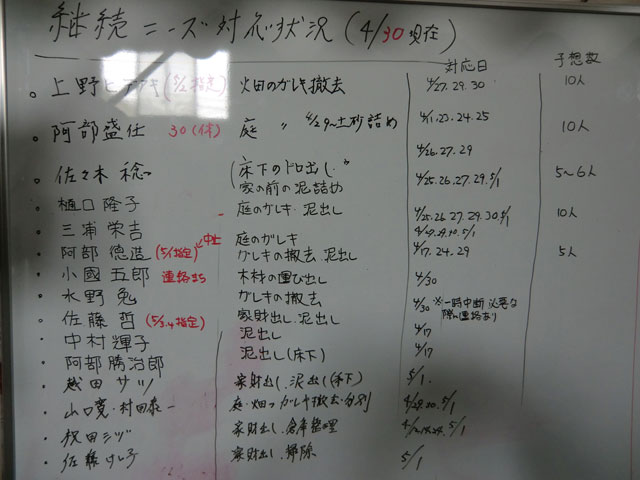 継続ニーズ対応状況(4/30現在)
対応日 予想数
上野ヒデアキ(5/2指定) 畑田のガレキ撤去 4/27.29.30 10人
阿部盛任 30(休) 庭 〃 4/29〜土砂詰め 4/1.23.24.25 10人
4/26.27.29
佐々木 稔 床下のドロ出し 家の前の泥詰め 4/25.26.27.29.5/1 5〜6人
樋口 隆子 庭のガレキ・泥出し 4/25.26.27.29.30.5/1 10人
三浦 栄吉 庭のガレキ
阿部 徳造(5/1指定) 中止 ガレキの撤去 泥出し 4/17.24.29 5人
小國 五郎 連絡まち 木材の運び出し 4/30
水野 勉 ガレキの撤去 4/30 ※一時中断 必要な際に連絡あり
佐藤 哲(5/3.4指定) 家財出し.泥出し 4/17
中村輝子 泥出し 4/17
阿部勝治郎 泥出し(床下)
越田 サツ 家財出し、泥出し(床下) 5/1.
山口寛・村田泰一 庭・畑のガレキ撤去・分別
牧田シヅ 家財出し.倉庫整理
佐藤けい子 家財出し.掃除 5/1